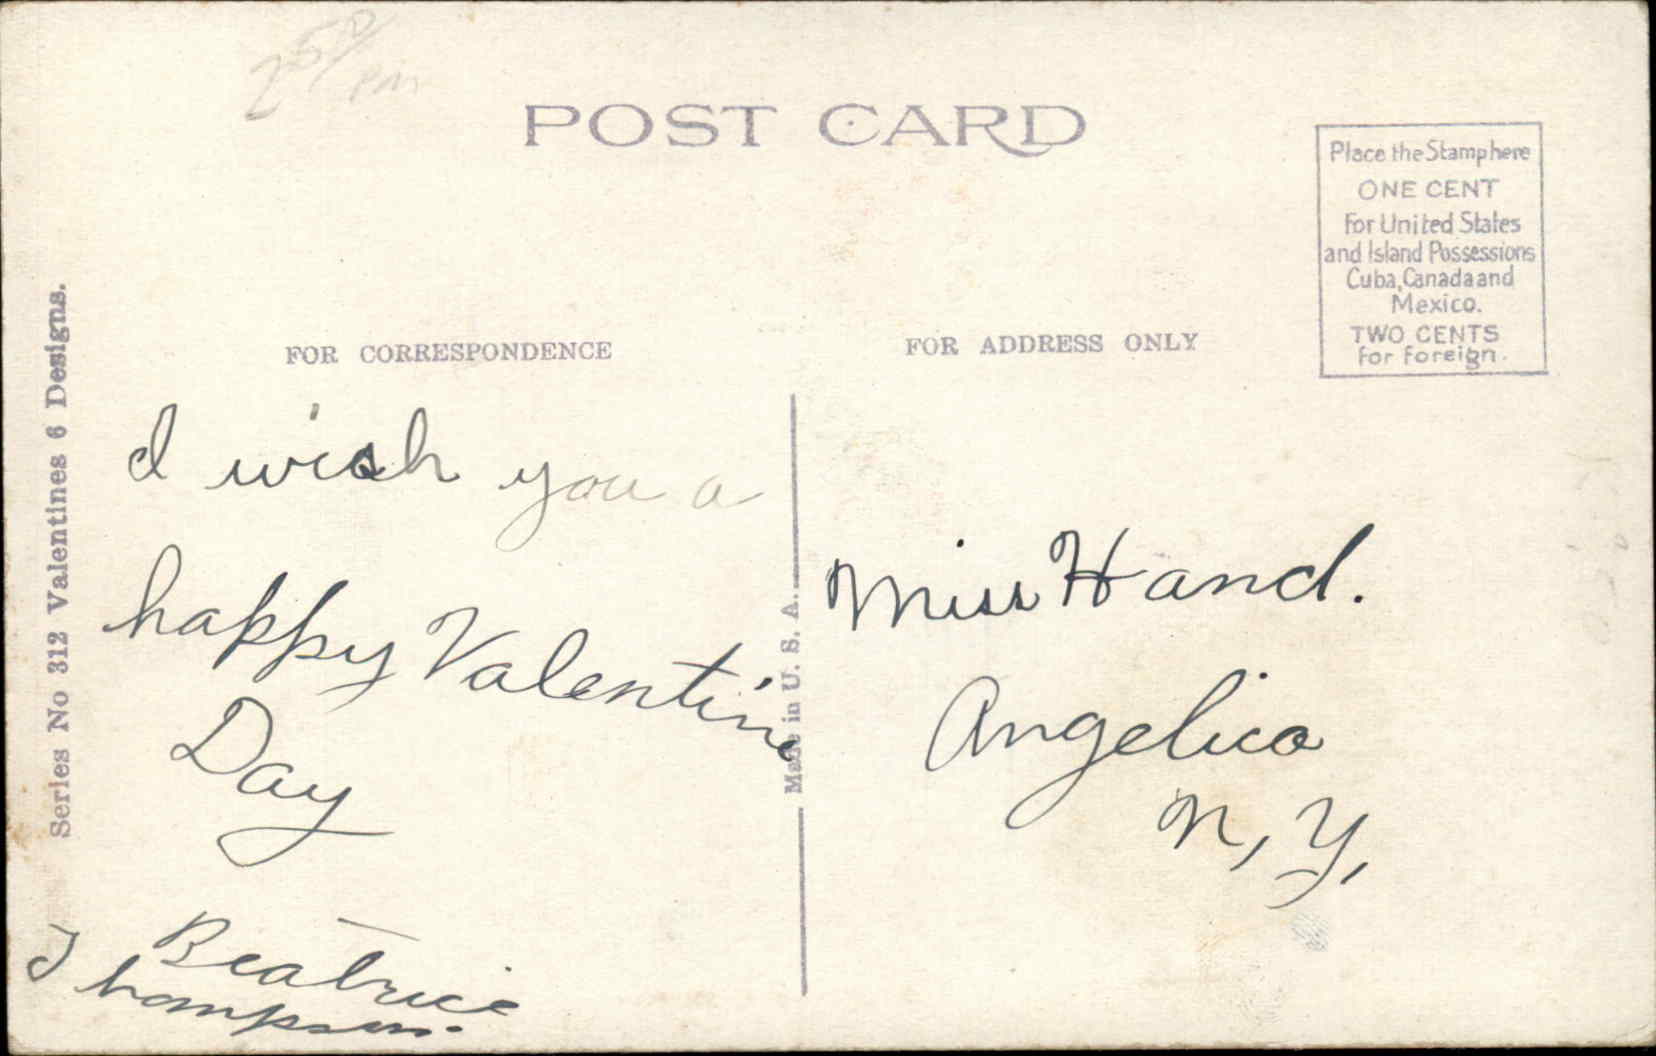 2 50
Pm
POST CARD
Place the Stamp here
ONE CENT
For United States
and Island Possessions
Cuba, Canada and
Mexico.
TWO CENTS
for Foreign.
FOR CORRESPONDENCE
FOR ADDRESS ONLY
Series No 312 Valentines 6 Designs.
I wish you a
happy Valentine
Day
Beatrice
Thompson.
Made in U. S. A.
Miss Hand.
Angelica
N, Y,